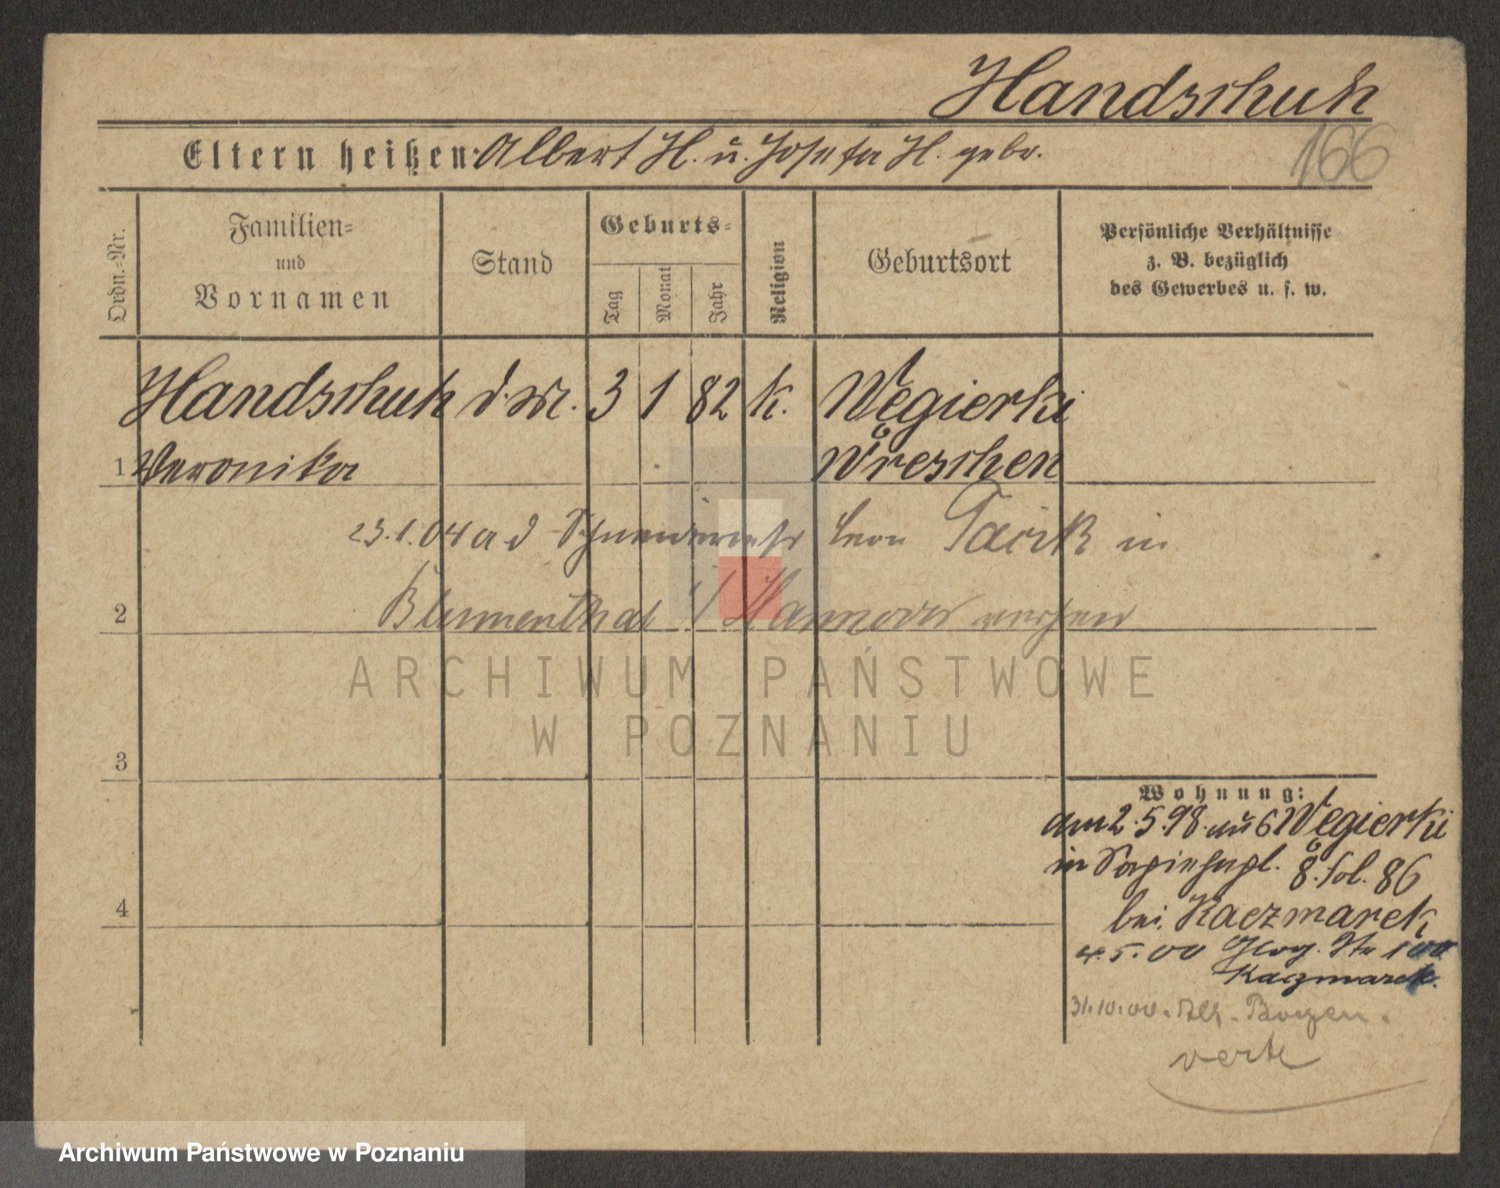 Handschuh
166
Eltern heißen: Albert H. u. Josefa H. gebr.
Ordn.=Nr.
Familien=
und
Vornamen
Stand
Geburts=
Tag
Monat
Jahr
Religion
Geburtsort
Persönliche Verhältnisse
z. B. bezüglich
des Gewerbes u. s. w.
Handschuh d. M. 3 1 82 k. Wegierki
1 Veronika Wreschen
23.1.04 a d Leon in
2 Blumenthal Hannover
ARCHIWUM PAŃSTWOWE
W POZNANIU
3
Wohnung:
am 2.5.98. Wegierki
in 8. fol. 86
4
bei Kaczmarek
4.5.00 Glog. Str 100
Kaczmarek.
31.10.00. Bogen.
verte
Archiwum Państwowe w Poznaniu